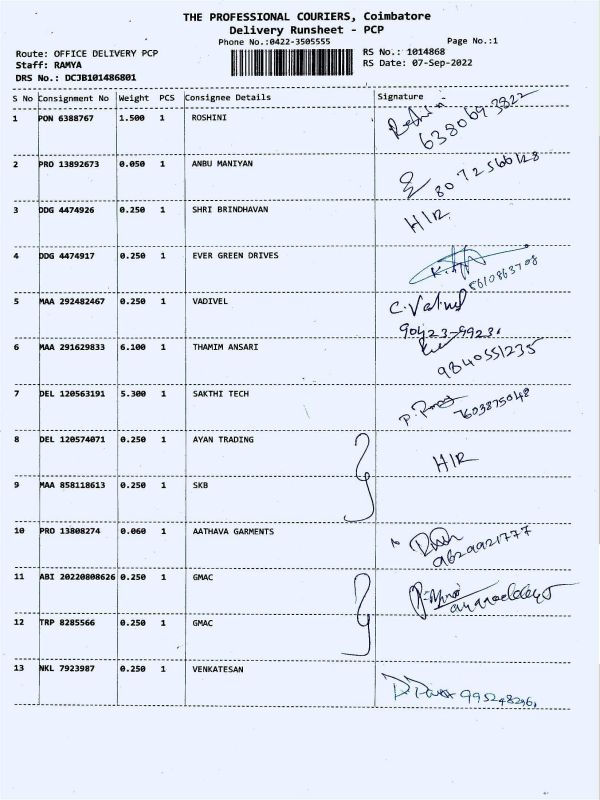 THE PROFESSIONAL COURIERS, Coimbatore
Delivery Runsheet - PCP
Phone No.:0422-3505555 Page No.:1
Route: OFFICE DELIVERY PCP RS No.: 1014868
Staff: RAMYA RS Date: 07-Sep-2022
DRS No.: DCJB101486801
S No Consignment No Weight PCS Consignee Details Signature
1 PON 6388767 1.500 1 ROSHINI
2 PRO 13892673 0.050 1 ANBU MANIYAN
3 DDG 4474926 0.250 1 SHRI BRINDHAVAN H/R
4 DDG 4474917 0.250 1 EVER GREEN DRIVES
5 MAA 292482467 0.250 1 VADIVEL
90423-9923
6 MAA 291629833 6.100 1 THAMIM ANSARI
9840551235
7 DEL 120563191 5.300 1 SAKTHI TECH 7603875048
8 DEL 120574071 0.250 1 AYAN TRADING H/R
9 MAA 858118613 0.250 1 SKB
10 PRO 13808274 0.060 1 AATHAVA GARMENTS
11 ABI 20220808626 0.250 1 GMAC
12 TRP 8285566 0.250 1 GMAC
13 NKL 7923987 0.250 1 VENKATESAN